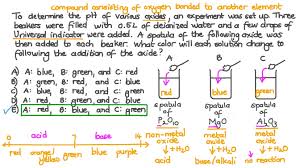 compound consisting of oxygen bonded to another element
To determine the pH of various oxides, an experiment was set up. Three
beakers were filled with 0.5L of deionized water and a few drops of
Universal indicator were added. A spatula of the following oxide was
then added to each beaker: what color will each solution change to
following the addition of the oxide?
A) A: blue, B: red, and C: red
B) A: green, B: red, and C: blue
C) A: red, B: blue, and C: blue
D) A: blue, B: red, and C: green
E) A: red, B: blue, and C: green
A B C
spatula of P₄O₁₀
spatula of MgO
spatula of Al₂O₃
acid 7 base 14
red orange yellow green blue purple
non-metal oxide ↓+H₂O acid
metal oxide ↓+H₂O base/alkali
↓+H₂O no reaction